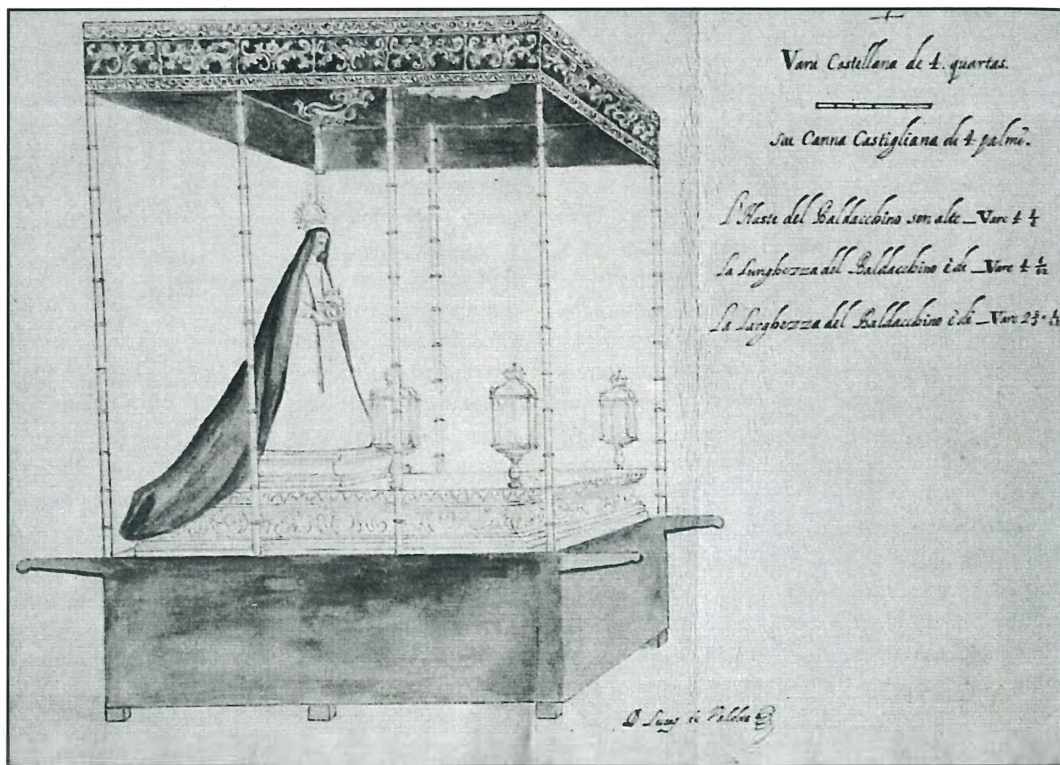 Vara Castellana de 4. quartas.
siu Canna Castigliana di 4 palmi.
L'Haste del Baldacchino son alte _ Vare 4 1/2
La Lunghezza del Baldacchino è di _ Vare 4 1/12
La Larghezza del Baldacchino è di _ Vare 2
D Lucas de Valdes